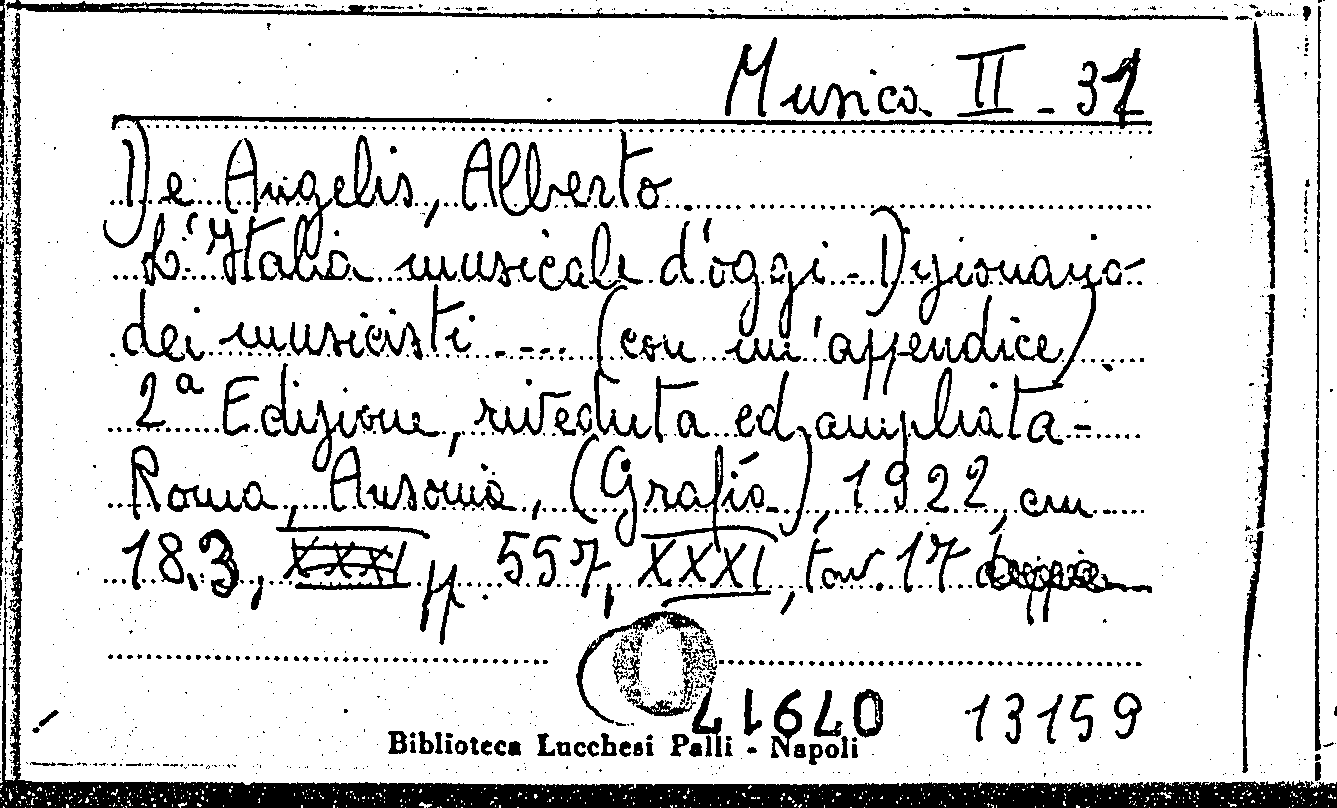 Musica II - 31
De Angelis, Alberto.
L'Italia musicale d'oggi - Dizionario
dei musicisti .... (con un'appendice).
2ª Edizione, riveduta ed ampliata -
Roma, Ausonia, (Grafia), 1922, cm
18.3, XXXI pp. 557, XXXI, tav. 17
13159
Biblioteca Lucchesi Palli - Napoli